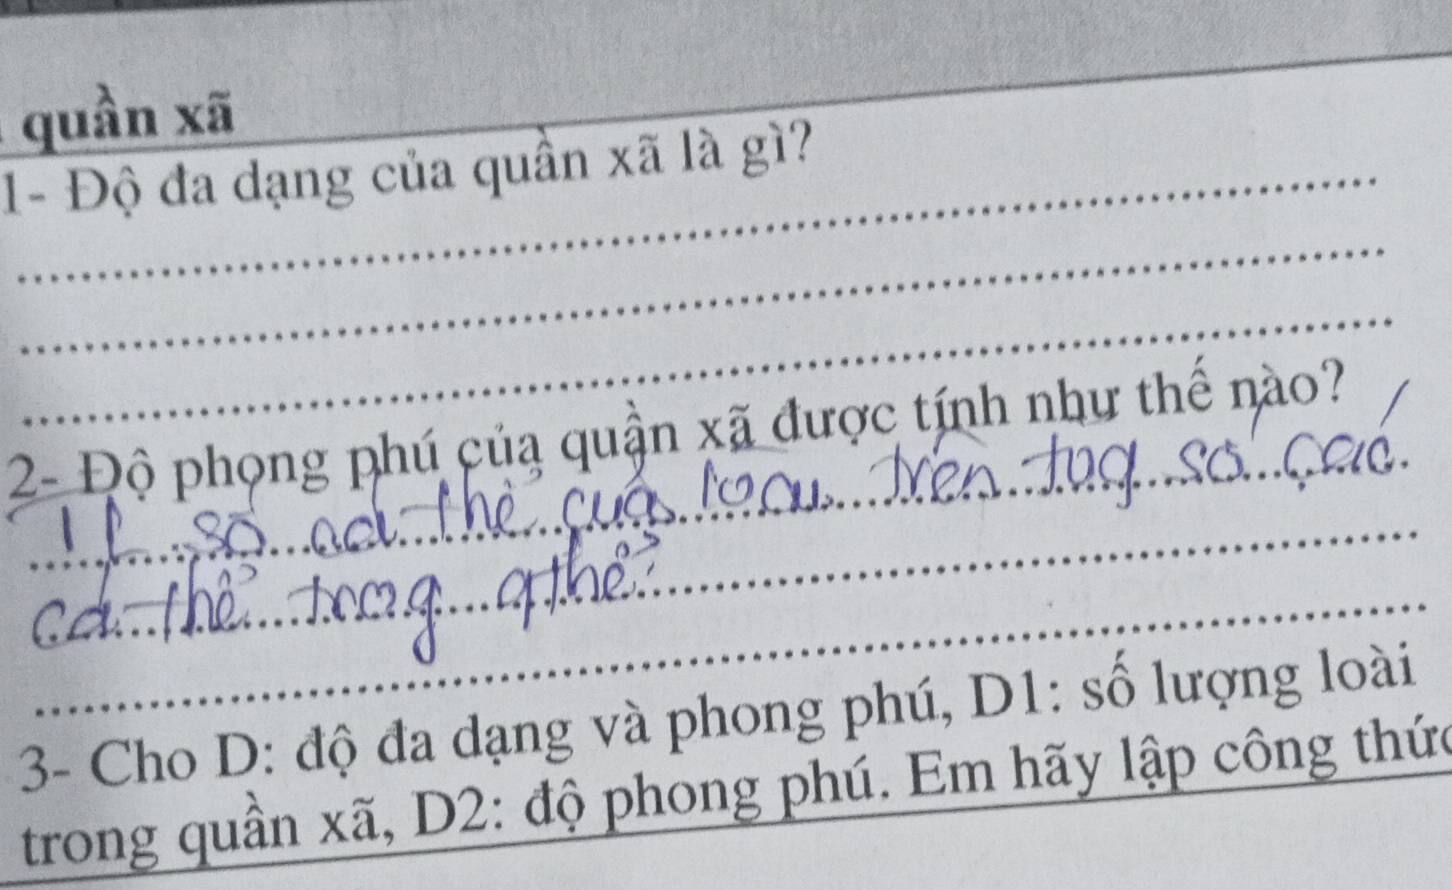 quần xã
1- Độ đa dạng của quần xã là gì?
2- Độ phong phú của quần xã được tính như thế nào?
số cá thể của loài trên tog số các
cá thể trog
3- Cho D: độ đa dạng và phong phú, D1: số lượng loài
trong quần xã, D2: độ phong phú. Em hãy lập công thức